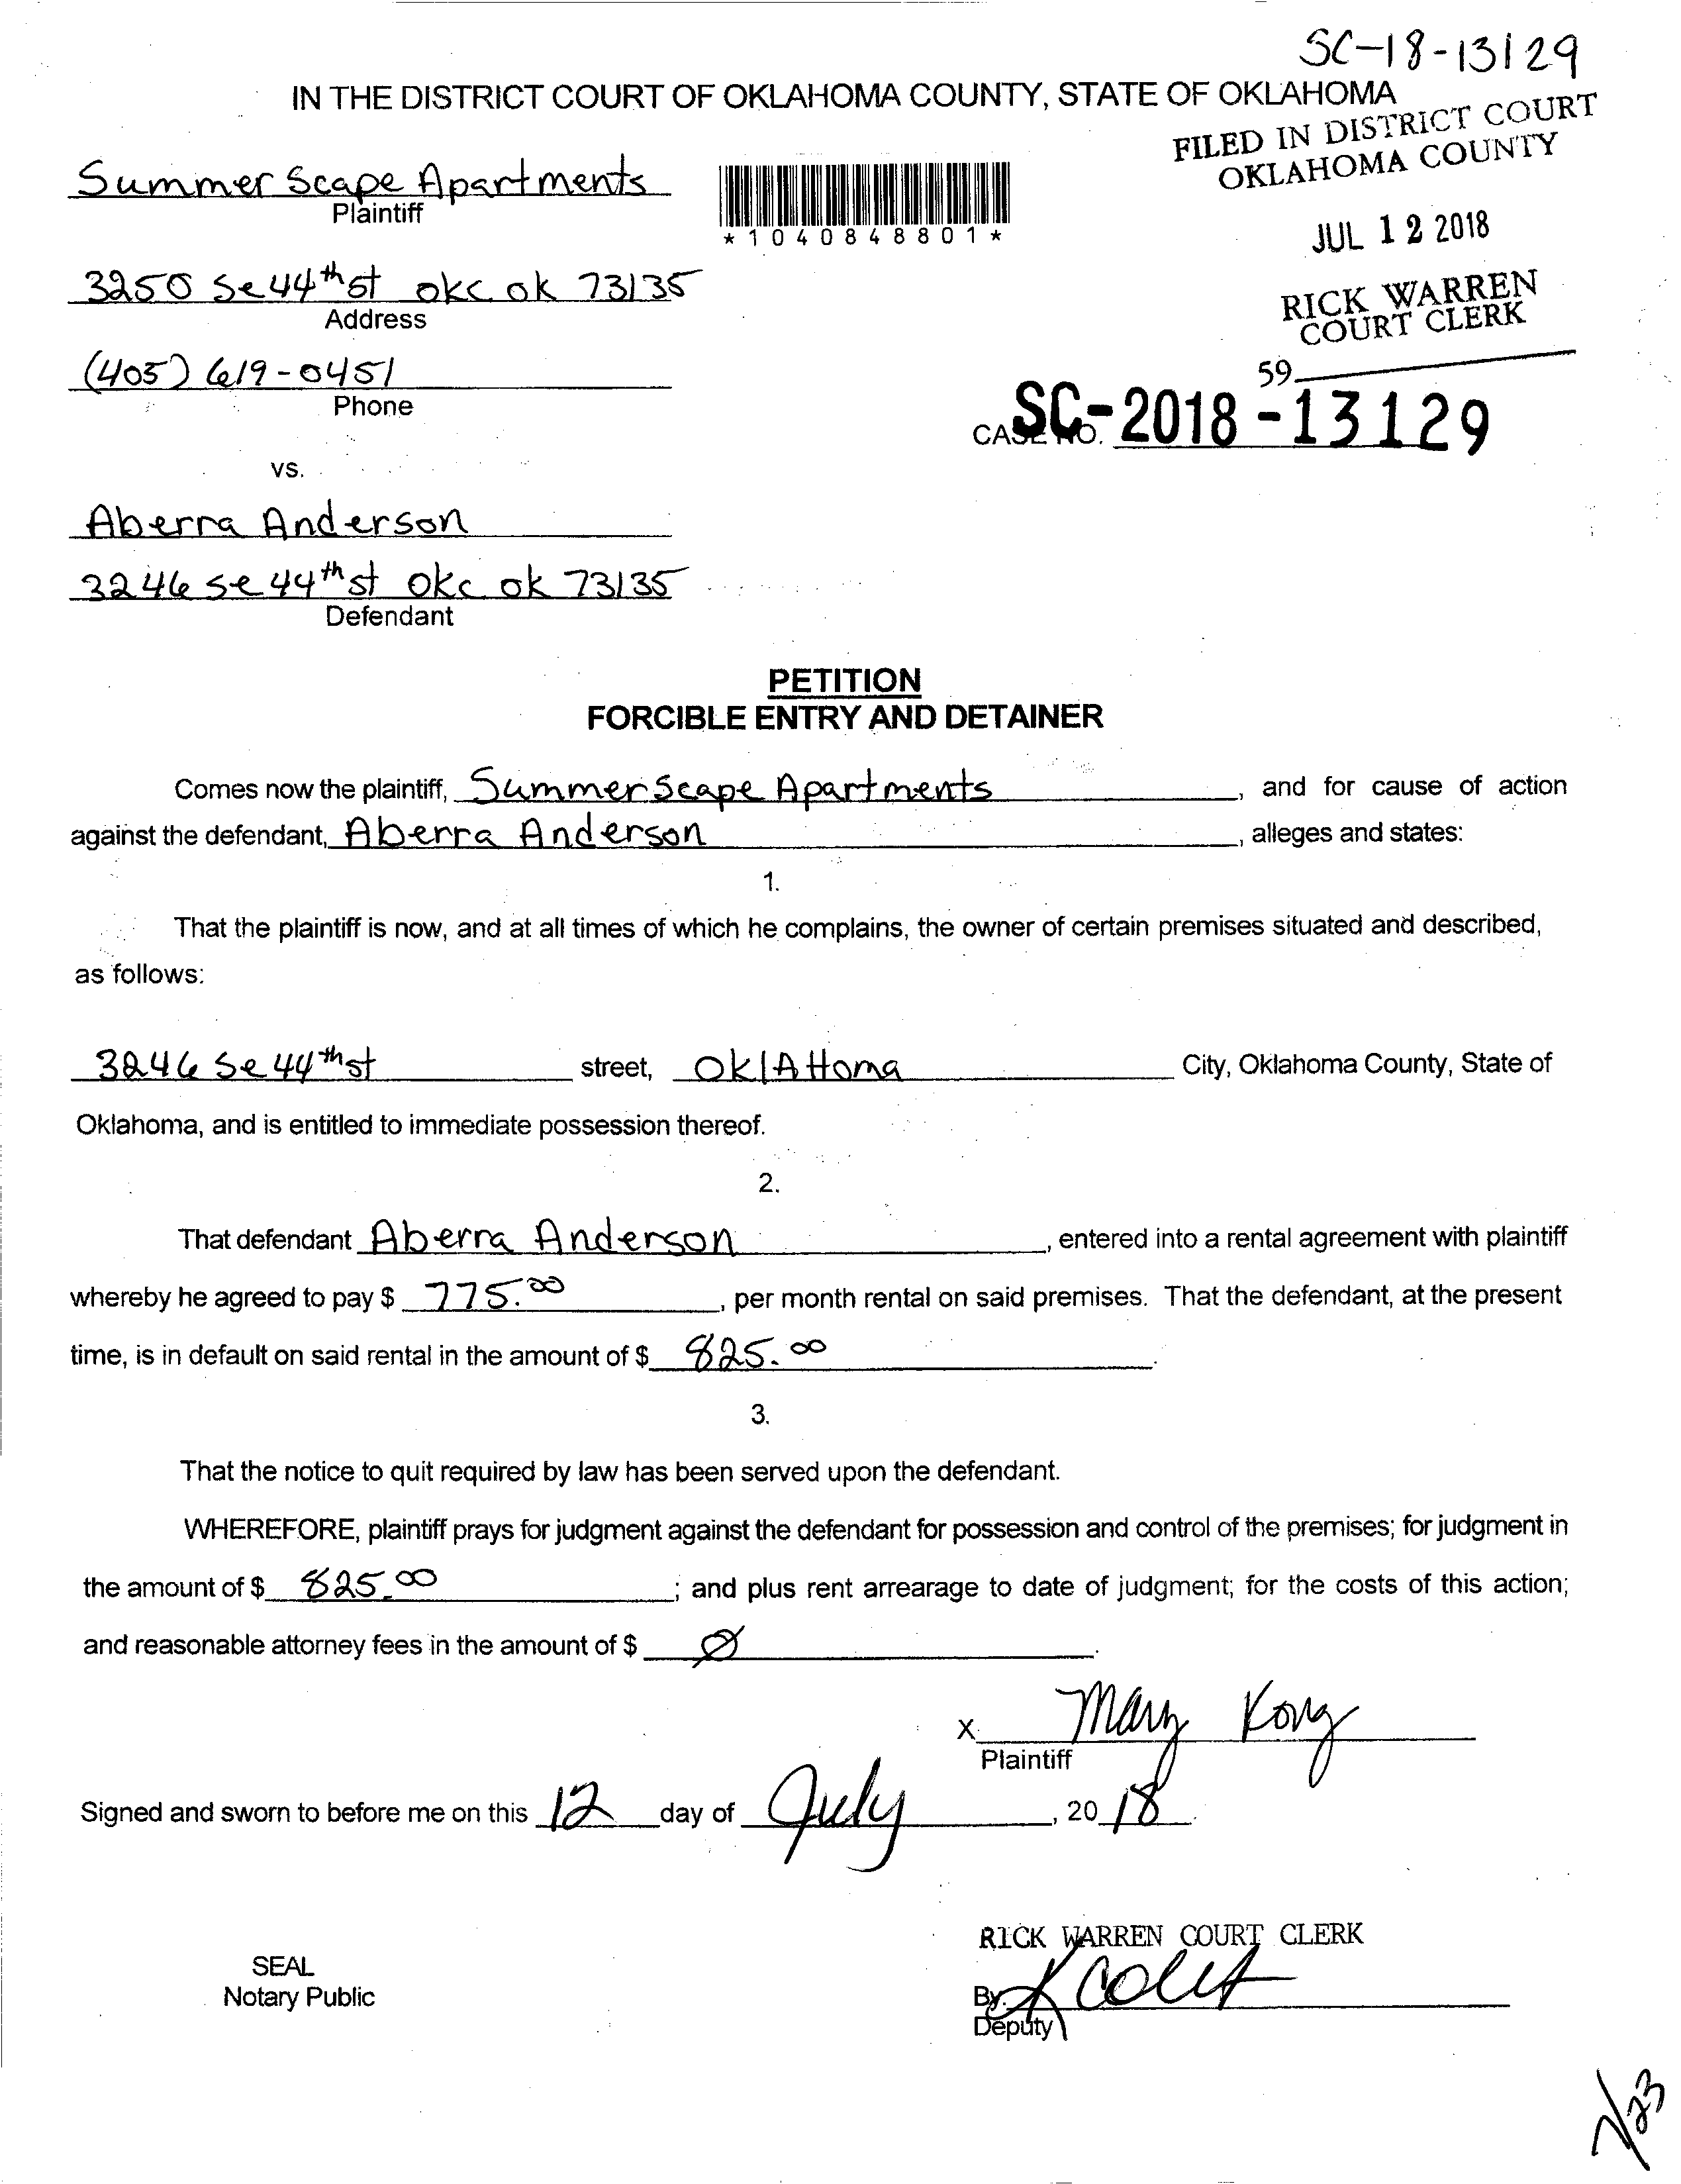 SC-18-13129
IN THE DISTRICT COURT OF OKLAHOMA COUNTY, STATE OF OKLAHOMA
FILED IN DISTRICT COURT
OKLAHOMA COUNTY
Summer Scape Apartments
Plaintiff
*1040848801*
JUL 12 2018
3250 Se 44th st okc ok 73135
Address
RICK WARREN
COURT CLERK
(405) 619-0451
Phone
59
CASE NO. SC-2018-13129
vs.
Aberra Anderson
3246 se 44th st okc ok 73135
Defendant
PETITION
FORCIBLE ENTRY AND DETAINER
Comes now the plaintiff, Summer Scape Apartments, and for cause of action
against the defendant, Aberra Anderson, alleges and states:
1.
That the plaintiff is now, and at all times of which he complains, the owner of certain premises situated and described,
as follows:
3246 Se 44th st street, OklAHoma City, Oklahoma County, State of
Oklahoma, and is entitled to immediate possession thereof.
2.
That defendant Aberra Anderson, entered into a rental agreement with plaintiff
whereby he agreed to pay $ 775.00, per month rental on said premises. That the defendant, at the present
time, is in default on said rental in the amount of $ 825.00.
3.
That the notice to quit required by law has been served upon the defendant.
WHEREFORE, plaintiff prays for judgment against the defendant for possession and control of the premises; for judgment in
the amount of $ 825.00; and plus rent arrearage to date of judgment; for the costs of this action;
and reasonable attorney fees in the amount of $ Ø.
X Mary Kong
Plaintiff
Signed and sworn to before me on this 12 day of July, 2018.
RICK WARREN COURT CLERK
SEAL
Notary Public
By:
Deputy
7/23